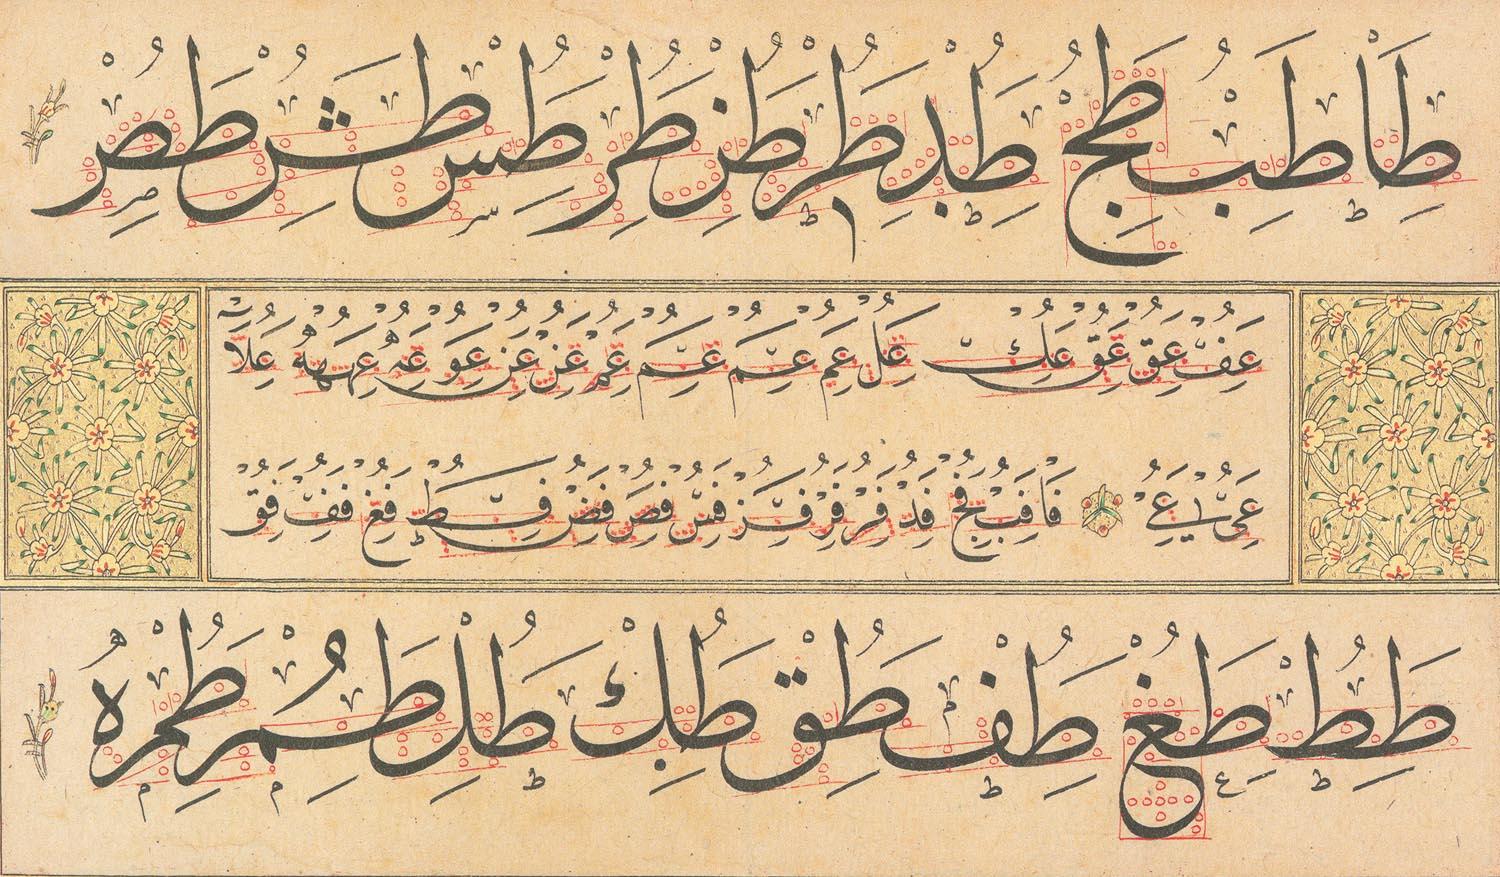 طا طب طج طد طر طن طر طس طش طص
عف عق عق علك عل عم عم عم عم عن عن عو عه عهه علا
عى عے فا فب فج فد فر فر فز فس فص فض فط فغ فف فق
طط طغ طف طق طك طل طم